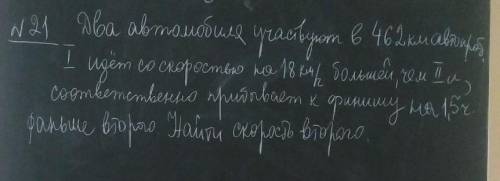 №21 Два автомобиля участвуют в 462 км автопроб.
I идёт со скоростью на 18 км/ч большей, чем II и,
соответственно прибывает к финишу на 1,5 ч
раньше второго. Найти скорость второго.